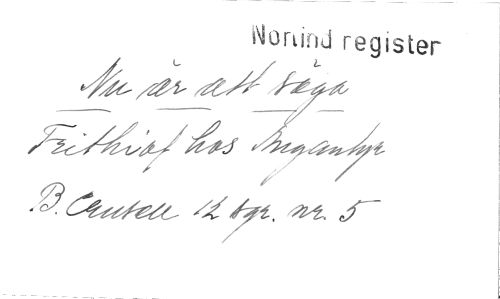 Norlind register
Nu är att säga
Frithiof hos Angantyr
B. Crusell 12 sgr. nr. 5